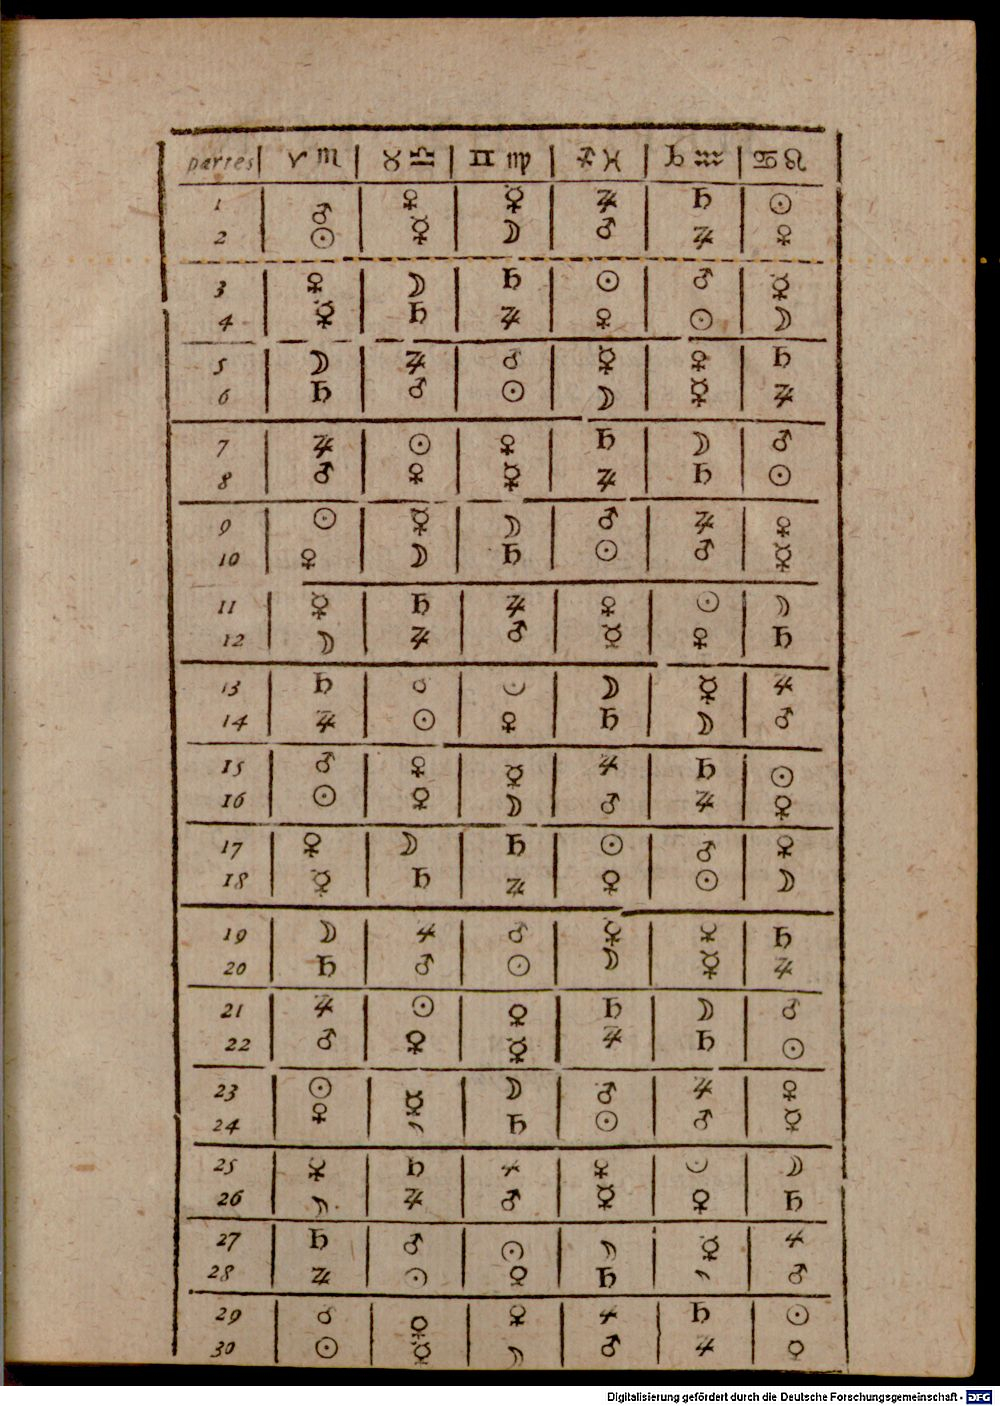 partes ♈ ♏ ♉ ♎ ♊ ♍ ♐ ♓ ♑ ♒ ♋ ♌
1 ♂ ♀ ☿ ♃ ♄ ☉
2 ☉ ☿ ☽ ♂ ♃ ♀
3 ♀ ☽ ♄ ☉ ♂ ☿
4 ☿ ♄ ♃ ♀ ☉ ☽
5 ☽ ♃ ♂ ☿ ♀ ♄
6 ♄ ♂ ☉ ☽ ☿ ♃
7 ♃ ☉ ♀ ♄ ☽ ♂
8 ♂ ♀ ☿ ♃ ♄ ☉
9 ☉ ☿ ☽ ♂ ♃ ♀
10 ♀ ☽ ♄ ☉ ♂ ☿
11 ☿ ♄ ♃ ♀ ☉ ☽
12 ☽ ♃ ♂ ☿ ♀ ♄
13 ♄ ♂ ☉ ☽ ☿ ♃
14 ♃ ☉ ♀ ♄ ☽ ♂
15 ♂ ♀ ☿ ♃ ♄ ☉
16 ☉ ♀ ☽ ♂ ♃ ♀
17 ♀ ☽ ♄ ☉ ♂ ☿
18 ☿ ♄ ♃ ♀ ☉ ☽
19 ☽ ♃ ♂ ☿ ♀ ♄
20 ♄ ♂ ☉ ☽ ☿ ♃
21 ♃ ☉ ♀ ♄ ☽ ♂
22 ♂ ♀ ☿ ♃ ♄ ☉
23 ☉ ☿ ☽ ♂ ♃ ♀
24 ♀ ☽ ♄ ☉ ♂ ☿
25 ☿ ♄ ♃ ♀ ☉ ☽
26 ☽ ♃ ♂ ☿ ♀ ♄
27 ♄ ♂ ☉ ☽ ☿ ♃
28 ♃ ☉ ♀ ♄ ☽ ♂
29 ♂ ♀ ☿ ♃ ♄ ☉
30 ☉ ☿ ☽ ♂ ♃ ♀
Digitalisierung gefördert durch die Deutsche Forschungsgemeinschaft - DFG